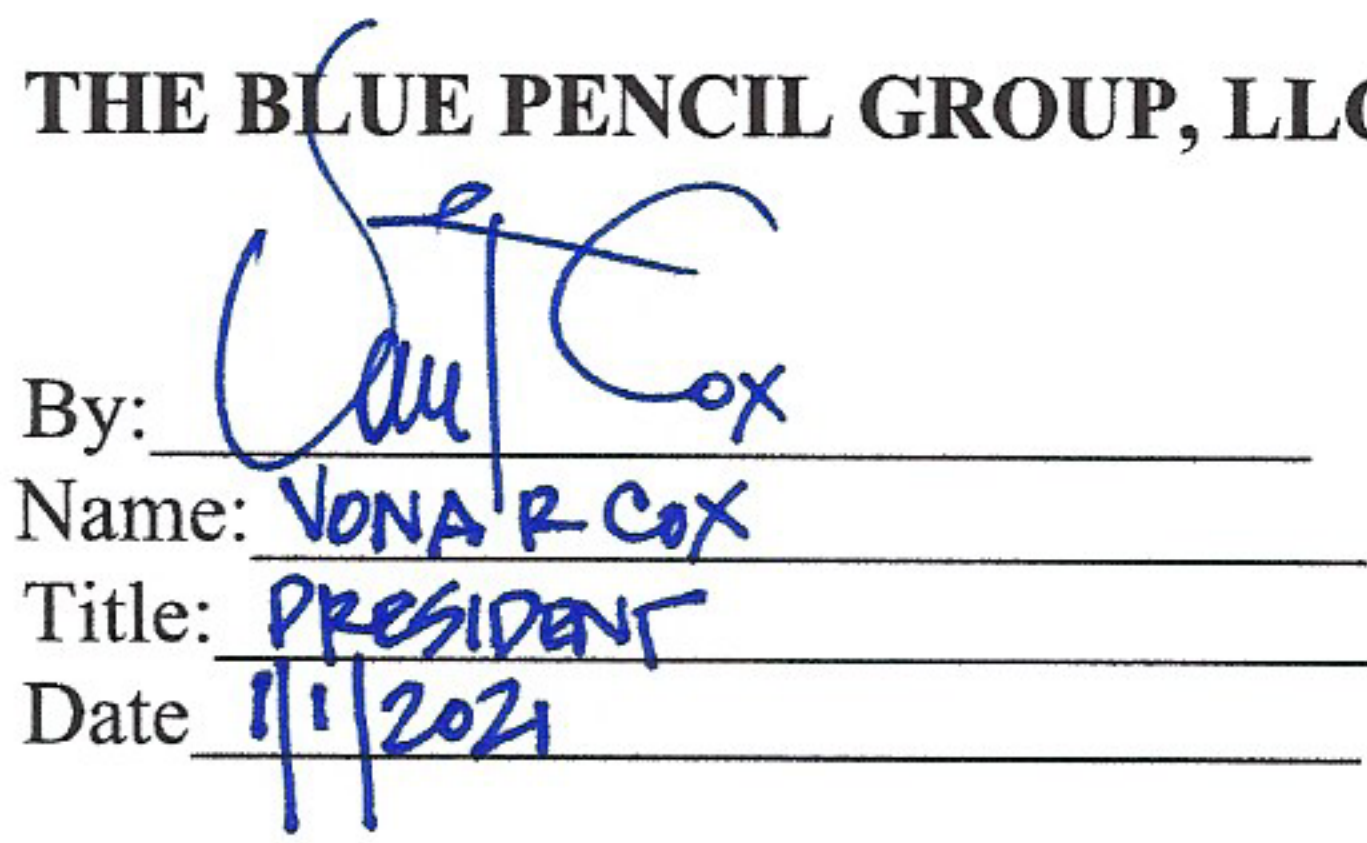 THE BLUE PENCIL GROUP, LLC
By: Cox
Name: VONA R COX
Title: PRESIDENT
Date 1/1/2021